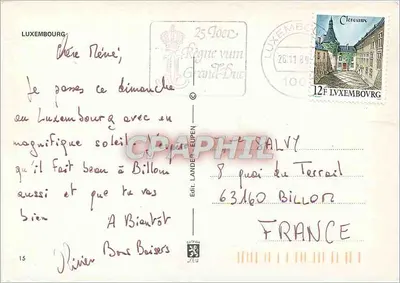 LUXEMBOURG
Chère Mémé,
Je passe ce dimanche
au Luxembourg avec un
magnifique soleil. J'espère
qu'il fait beau à Billom
aussi et que tu vas
bien
A Bientôt
Bons Baisers
15
Edit. LANDER-EUPEN ©
25 Joer
Règne vum
Grand-Duc
LUXEMBO
26.11.89
100
Clervaux
12F LUXEMBOURG
PCTROPHIL
SALVY
8 quai du Terrail
63160 BILLOM
FRANCE